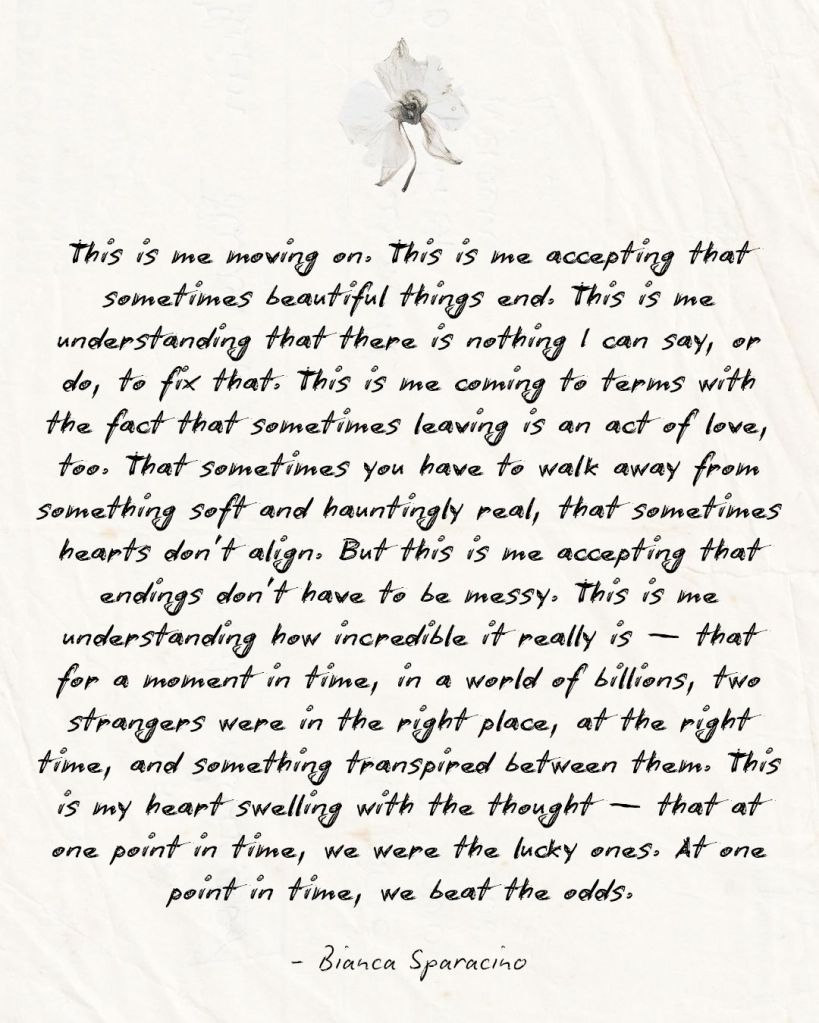 This is me moving on. This is me accepting that
sometimes beautiful things end. This is me
understanding that there is nothing I can say, or
do, to fix that. This is me coming to terms with
the fact that sometimes leaving is an act of love,
too. That sometimes you have to walk away from
something soft and hauntingly real, that sometimes
hearts don't align. But this is me accepting that
endings don't have to be messy. This is me
understanding how incredible it really is — that
for a moment in time, in a world of billions, two
strangers were in the right place, at the right
time, and something transpired between them. This
is my heart swelling with the thought — that at
one point in time, we were the lucky ones. At one
point in time, we beat the odds.
- Bianca Sparacino